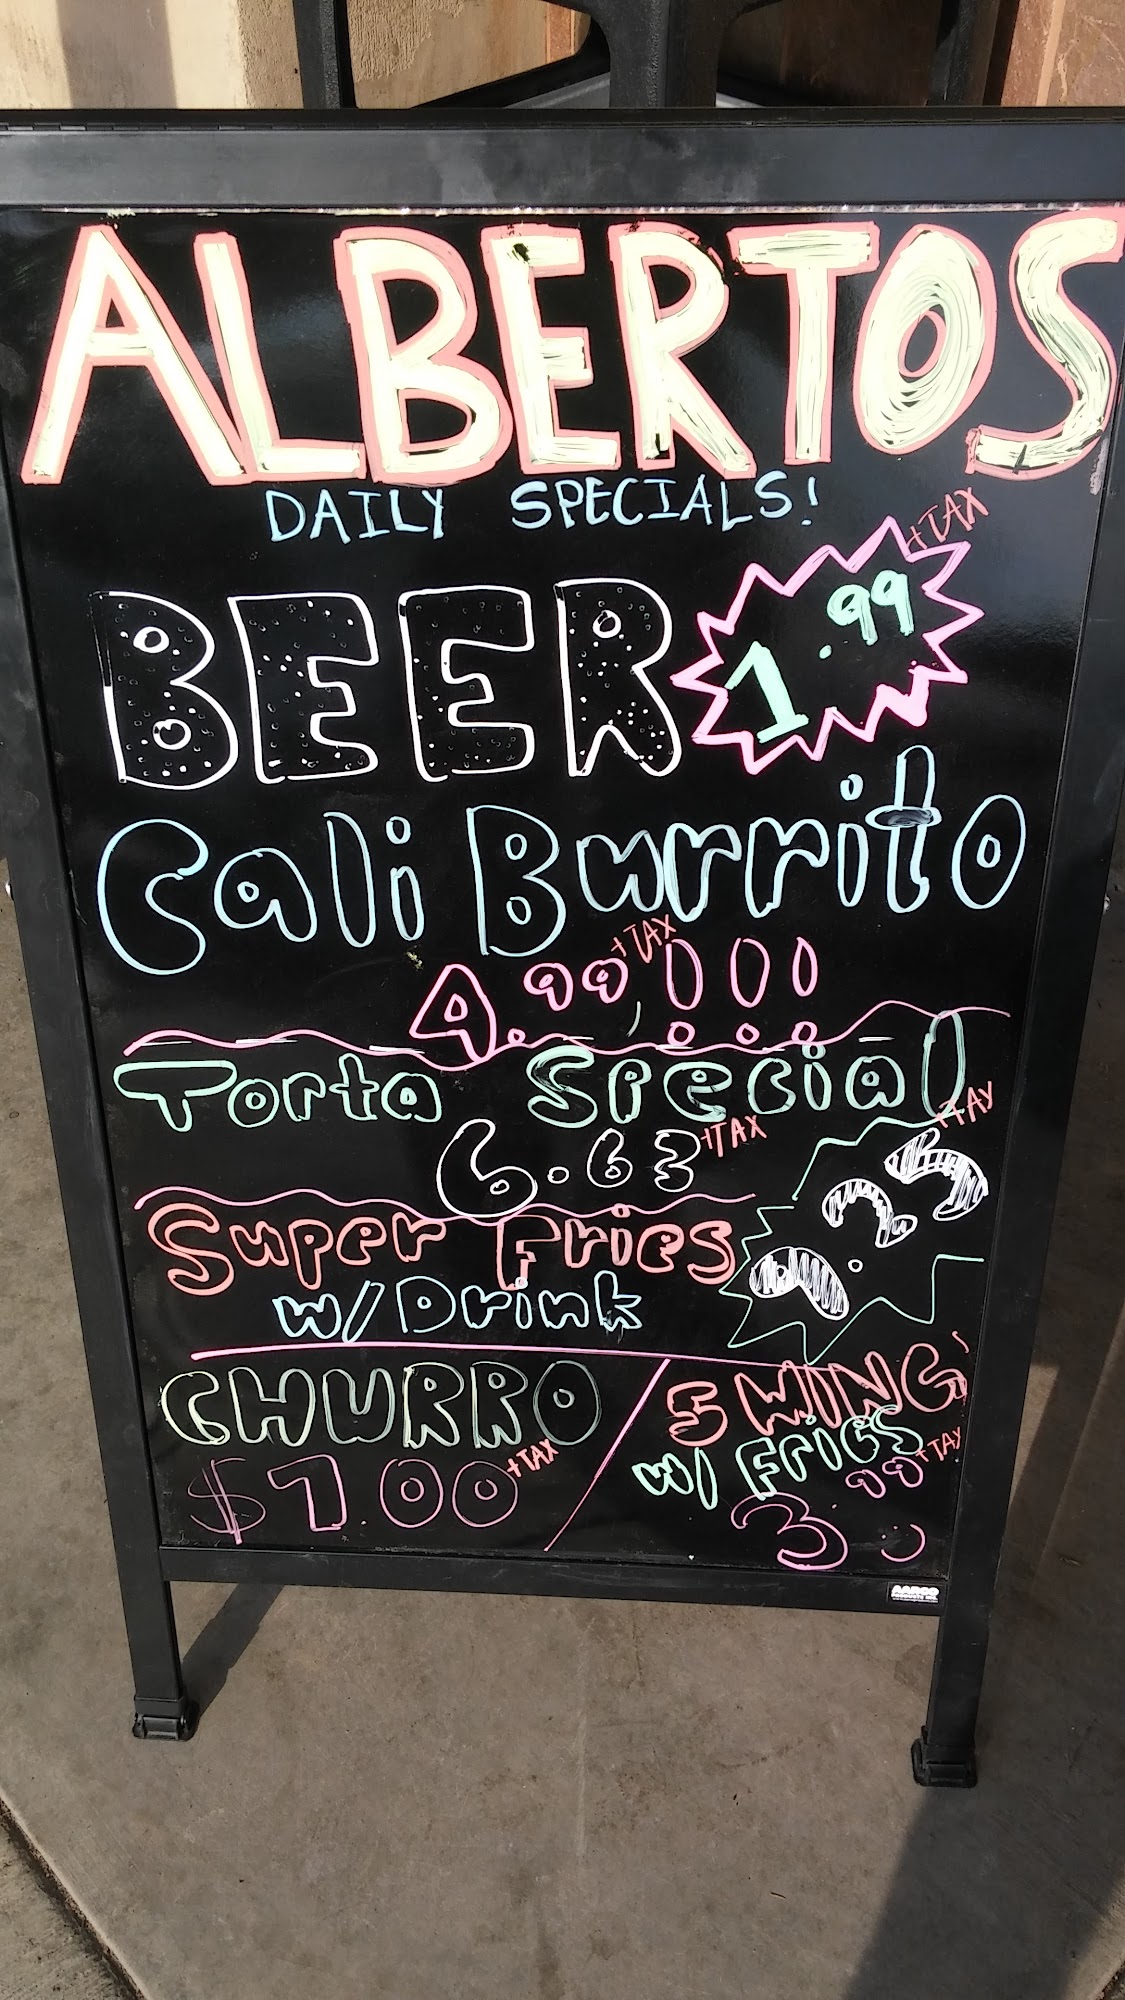 ALBERTOS
DAILY SPECIALS!
BEER 1.99 +TAX
Cali Burrito
4.99 +TAX !!!
Torta Special
6.63 +TAX
Super Fries
w/ Drink
+TAX
CHURRO
$1.00 +TAX
5 WING'S
w/ Fries
3.99 +TAX
AARCO
PRODUCTS INC.